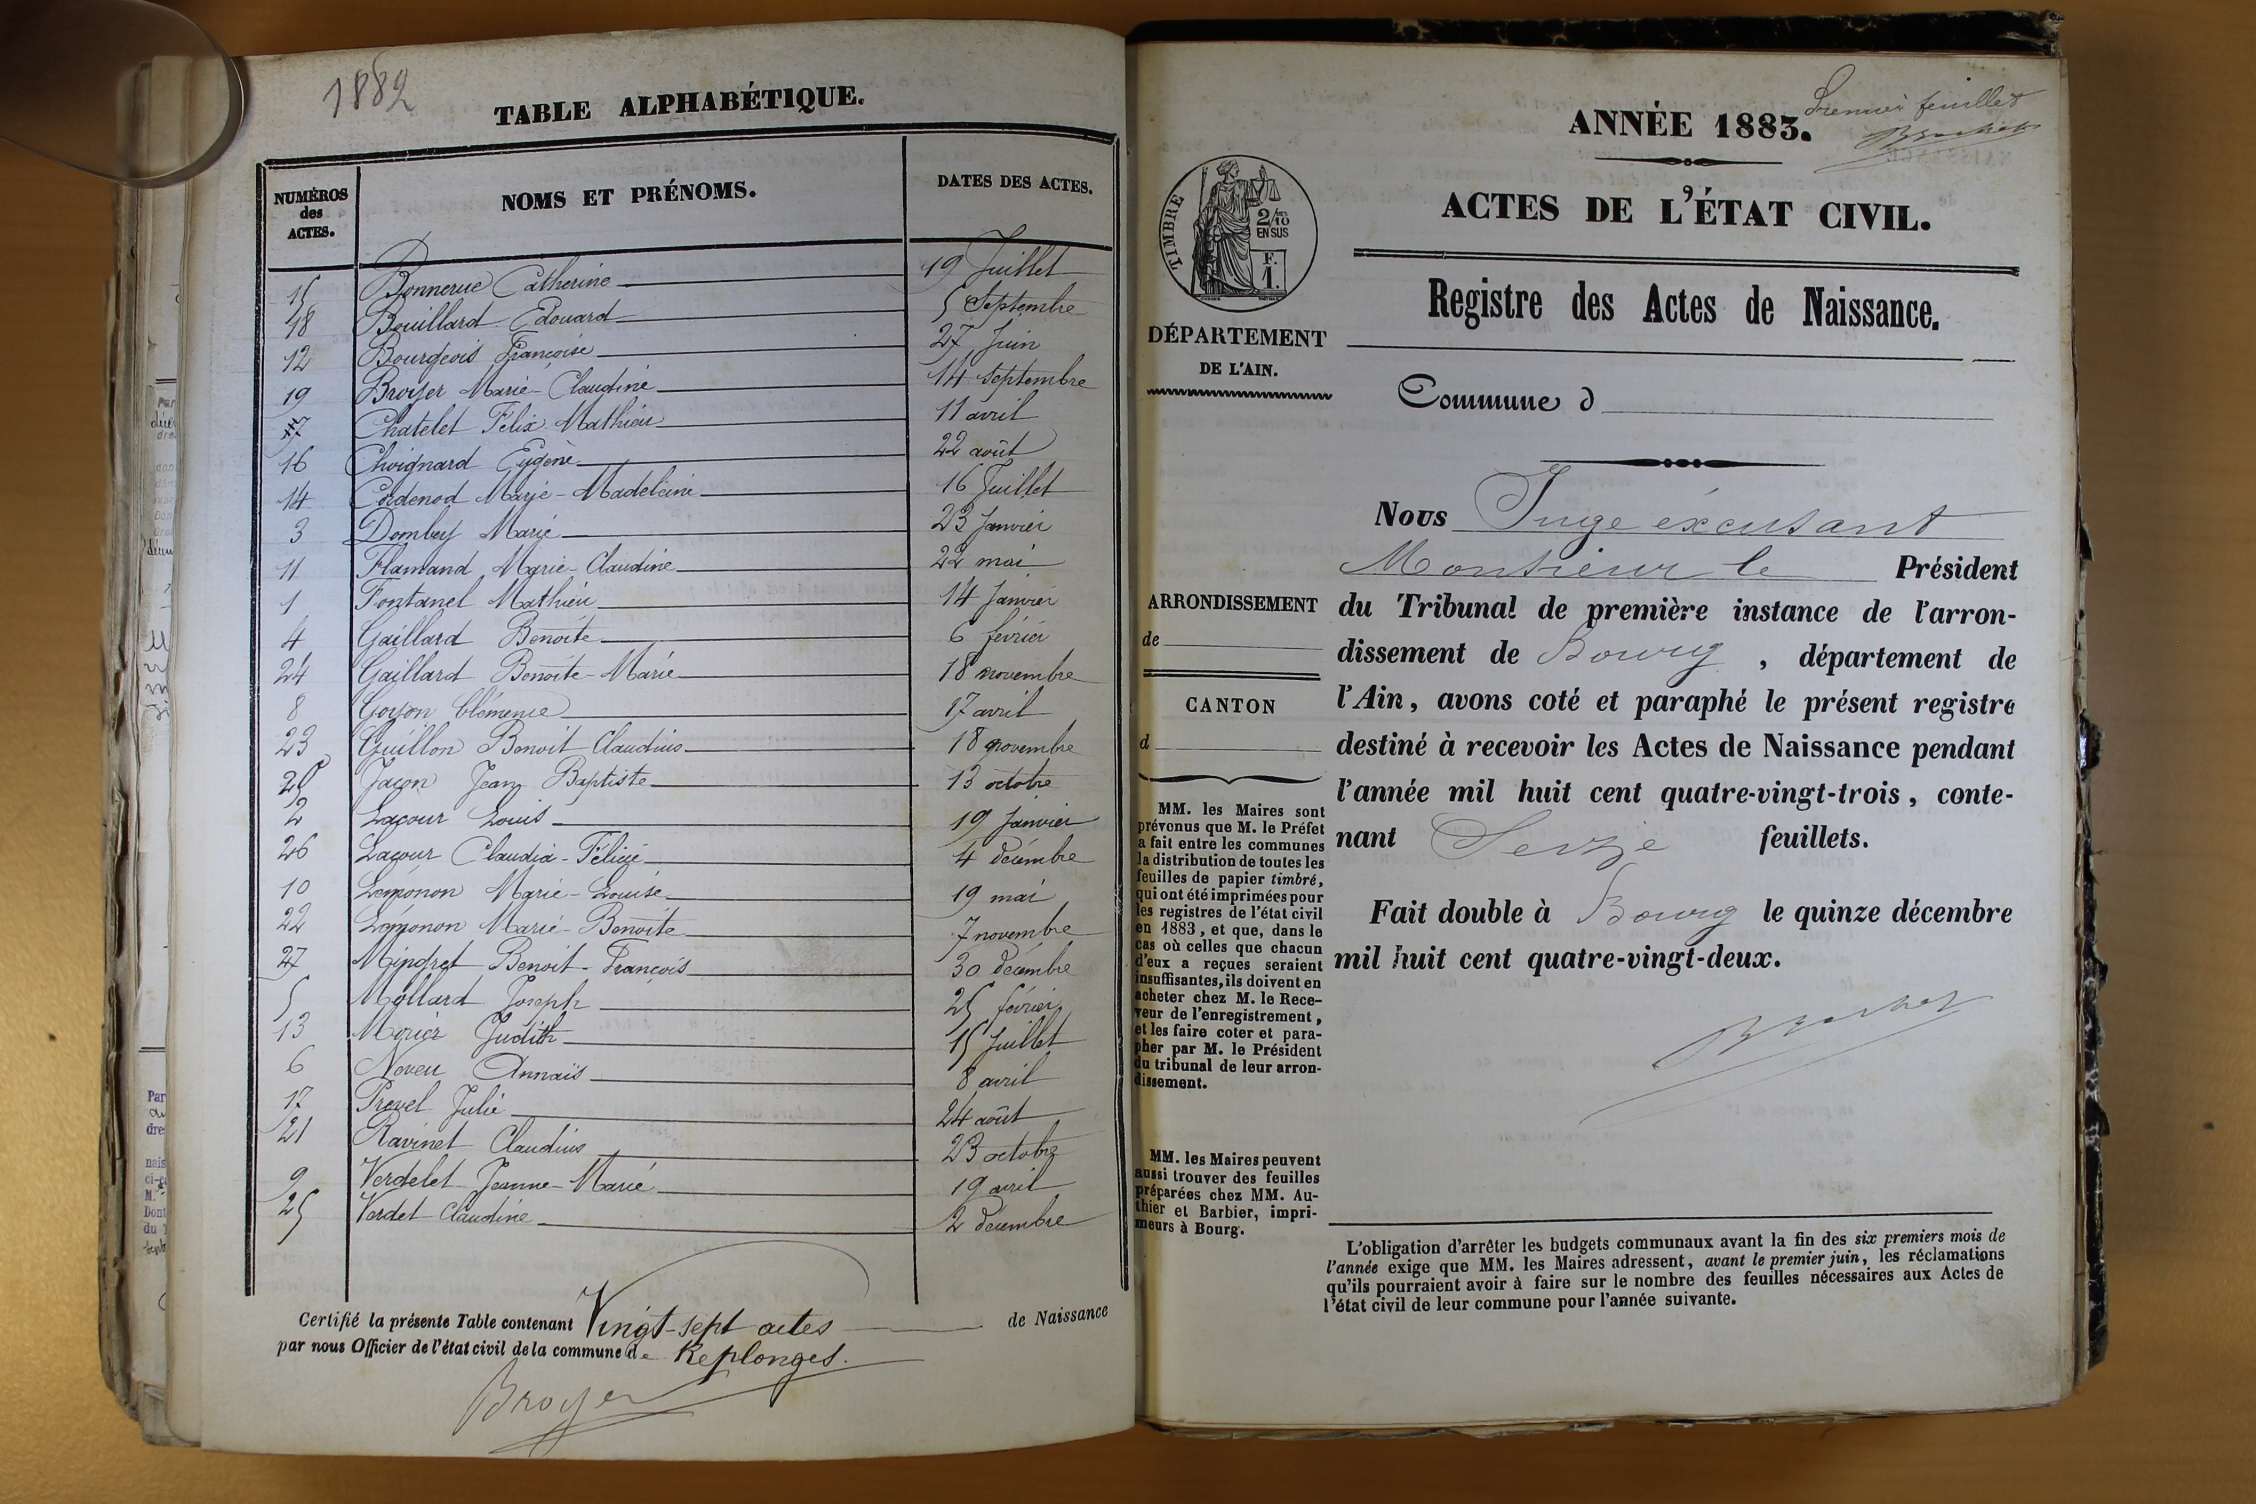 1882
TABLE ALPHABÉTIQUE.
NUMÉROS des ACTES. NOMS ET PRÉNOMS. DATES DES ACTES.
15 Bonnerue Catherine 19 Juillet
18 Bouillard Edouard 5 Septembre
12 Bourgeois Françoise 27 Juin
19 Broyer Marie-Claudine 14 septembre
7 Chatelet Félix Mathieu 11 avril
16 Choignard Eugène 22 août
14 Cordenod Marie-Madeleine 16 Juillet
3 Dombey Marie 23 Janvier
11 Flamand Marie-Claudine 22 mai
1 Fontanel Mathieu 14 Janvier
4 Gaillard Benoîte 6 février
24 Gaillard Benoîte-Marie 18 novembre
8 Goyon Clémence 17 avril
23 Guillon Benoit Claudius 18 novembre
20 Jacon Jean Baptiste 13 octobre
2 Lacour Louis 19 Janvier
26 Lacour Claudia-Félicie 4 décembre
10 Lémonon Marie-Louise 19 mai
22 Lémonon Marie-Benoîte 7 novembre
27 Mingret Benoit-François 30 décembre
5 Mollard Joseph 25 février
13 Morier Judith 15 Juillet
6 Neveu Annais 8 avril
17 Prevel Julie 24 août
21 Ravinet Claudius 23 octobre
9 Verdelet Jeanne-Marie 19 avril
25 Verdet Claudine 2 décembre
Certifié la présente Table contenant Vingt-sept actes de Naissance
par nous Officier de l'état civil de la commune de Replonges.
Broyer
Premier feuillet
ANNÉE 1883.
ACTES DE L'ÉTAT CIVIL.
TIMBRE
2/10 EN SUS
F. 1.
Registre des Actes de Naissance.
DÉPARTEMENT
DE L'AIN.
Commune d
Nous Juge éxcusant
Monsieur le Président
du Tribunal de première instance de l'arron-
dissement de Bourg, département de
l'Ain, avons coté et paraphé le présent registre
destiné à recevoir les Actes de Naissance pendant
l'année mil huit cent quatre-vingt-trois, conte-
nant Seize feuillets.
Fait double à Bourg le quinze décembre
mil huit cent quatre-vingt-deux.
ARRONDISSEMENT
de
CANTON
d
MM. les Maires sont
prévenus que M. le Préfet
a fait entre les communes
la distribution de toutes les
feuilles de papier timbré,
qui ont été imprimées pour
les registres de l'état civil
en 1883, et que, dans le
cas où celles que chacun
d'eux a reçues seraient
insuffisantes, ils doivent en
acheter chez M. le Rece-
veur de l'enregistrement,
et les faire coter et para-
pher par M. le Président
du tribunal de leur arron-
dissement.
MM. les Maires peuvent
aussi trouver des feuilles
préparées chez MM. Au-
thier et Barbier, impri-
meurs à Bourg.
L'obligation d'arrêter les budgets communaux avant la fin des six premiers mois de
l'année exige que MM. les Maires adressent, avant le premier juin, les réclamations
qu'ils pourraient avoir à faire sur le nombre des feuilles nécessaires aux Actes de
l'état civil de leur commune pour l'année suivante.